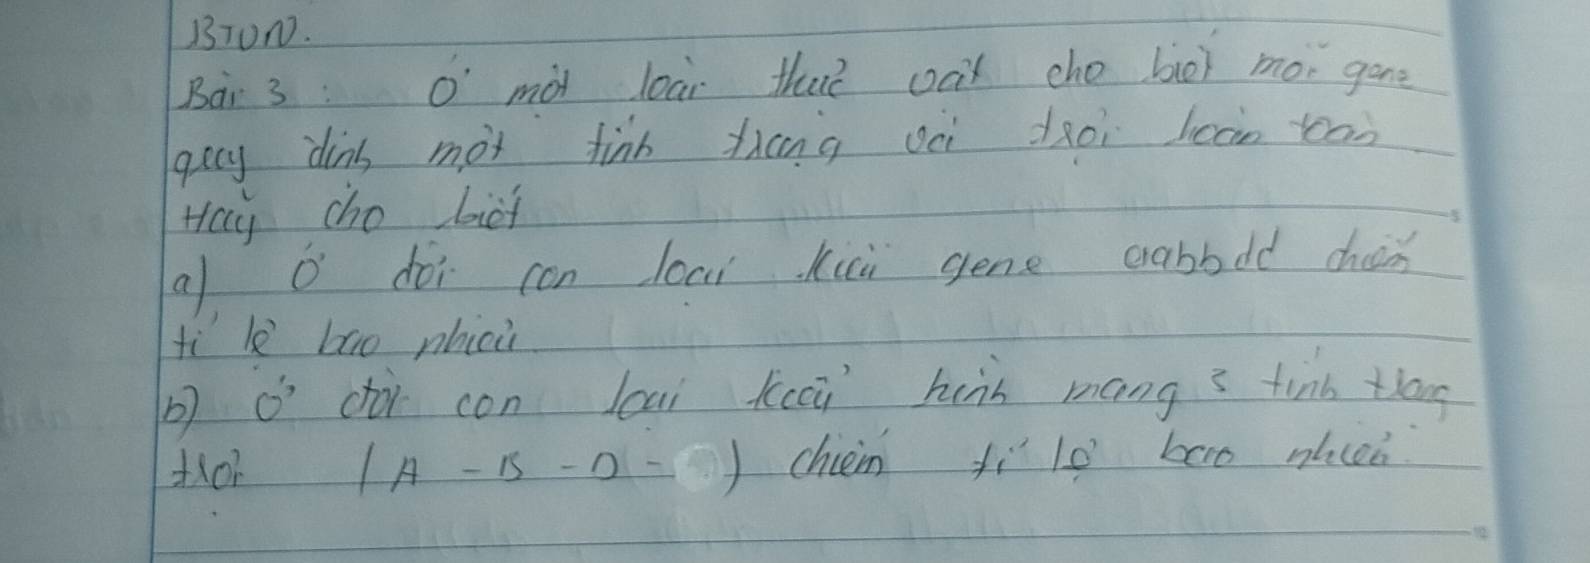 BTVN.
Bài 3 : Ở một loài thực vật cho biết mỗi gene
quy định một tính trạng và trội hoàn toàn
Hãy cho biết
a) Ở đời con loại kiểu gene aabbdd chiếm
tỉ lệ bao nhiêu
b) Ở đời con loại kiểu hình mang 3 tính trạng
trội (A - B - D - ) chiếm tỉ lệ bao nhiêu